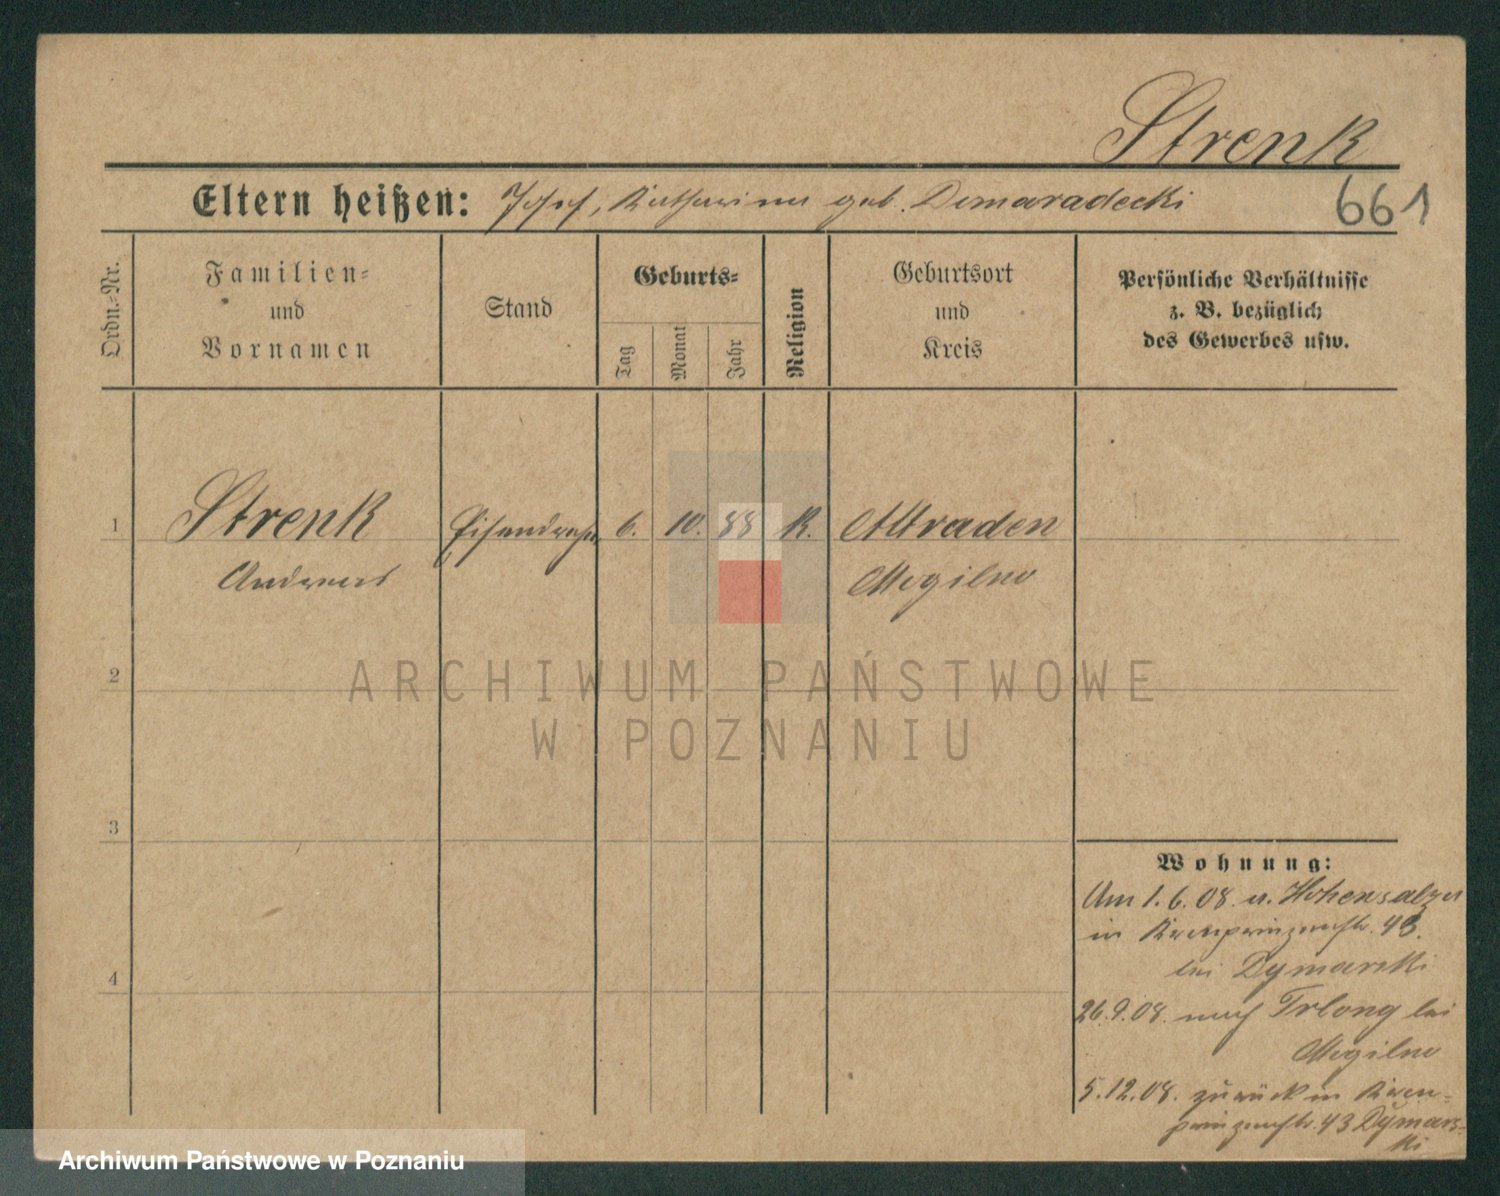 Strenk
Eltern heißen: Josef, Katharina geb. Domaradecki
661
Ordn.-Nr.
Familien-
und
Vornamen
Stand
Geburts-
Tag
Monat
Jahr
Religion
Geburtsort
und
Kreis
Persönliche Verhältnisse
z. B. bezüglich
des Gewerbes usw.
1 Strenk Eisendreher 6. 10. 88 K. Altraden
Andreas Mogilno
2
3
4
Wohnung:
Am 1.6.08. v. Hohensalza
in Kronprinzenstr. 43.
bei Dymarski
26.9.08. nach Trlong bei
Mogilno
5.12.08. zurück in Kron-
prinzenstr. 43 Dymars-
ki
ARCHIWUM PAŃSTWOWE
W POZNANIU
Archiwum Państwowe w Poznaniu